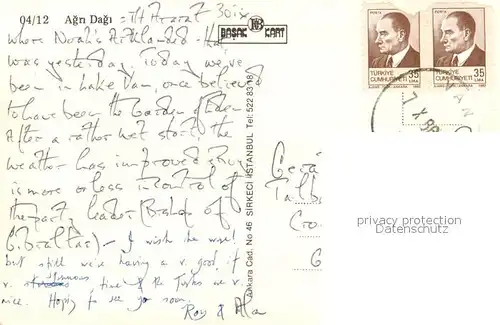 04/12 Ağrı Dağı = Mt Ararat 30 ix
where Noah's Ark landed. That
was yesterday. Today we've
been in Lake Van, once believed
to have been the Garden of Eden.
After a rather wet start the
weather has improved
is more or less in control of
the party leader (Bishop of
Gibraltar) - I wish he were!
but still we're having a v. good if
v. strenuous time & the Turks are v.
nice. Hoping to see you soon.
Roy &
BAŞAK KART
Ankara Cad. No 46 SİRKECİ İSTANBUL Tel: 522 83 18
POSTA
TÜRKİYE
CUMHURİYETİ
35
LİRA
POSTA
TÜRKİYE
CUMHURİYETİ
35
LİRA
privacy protection
Datenschutz